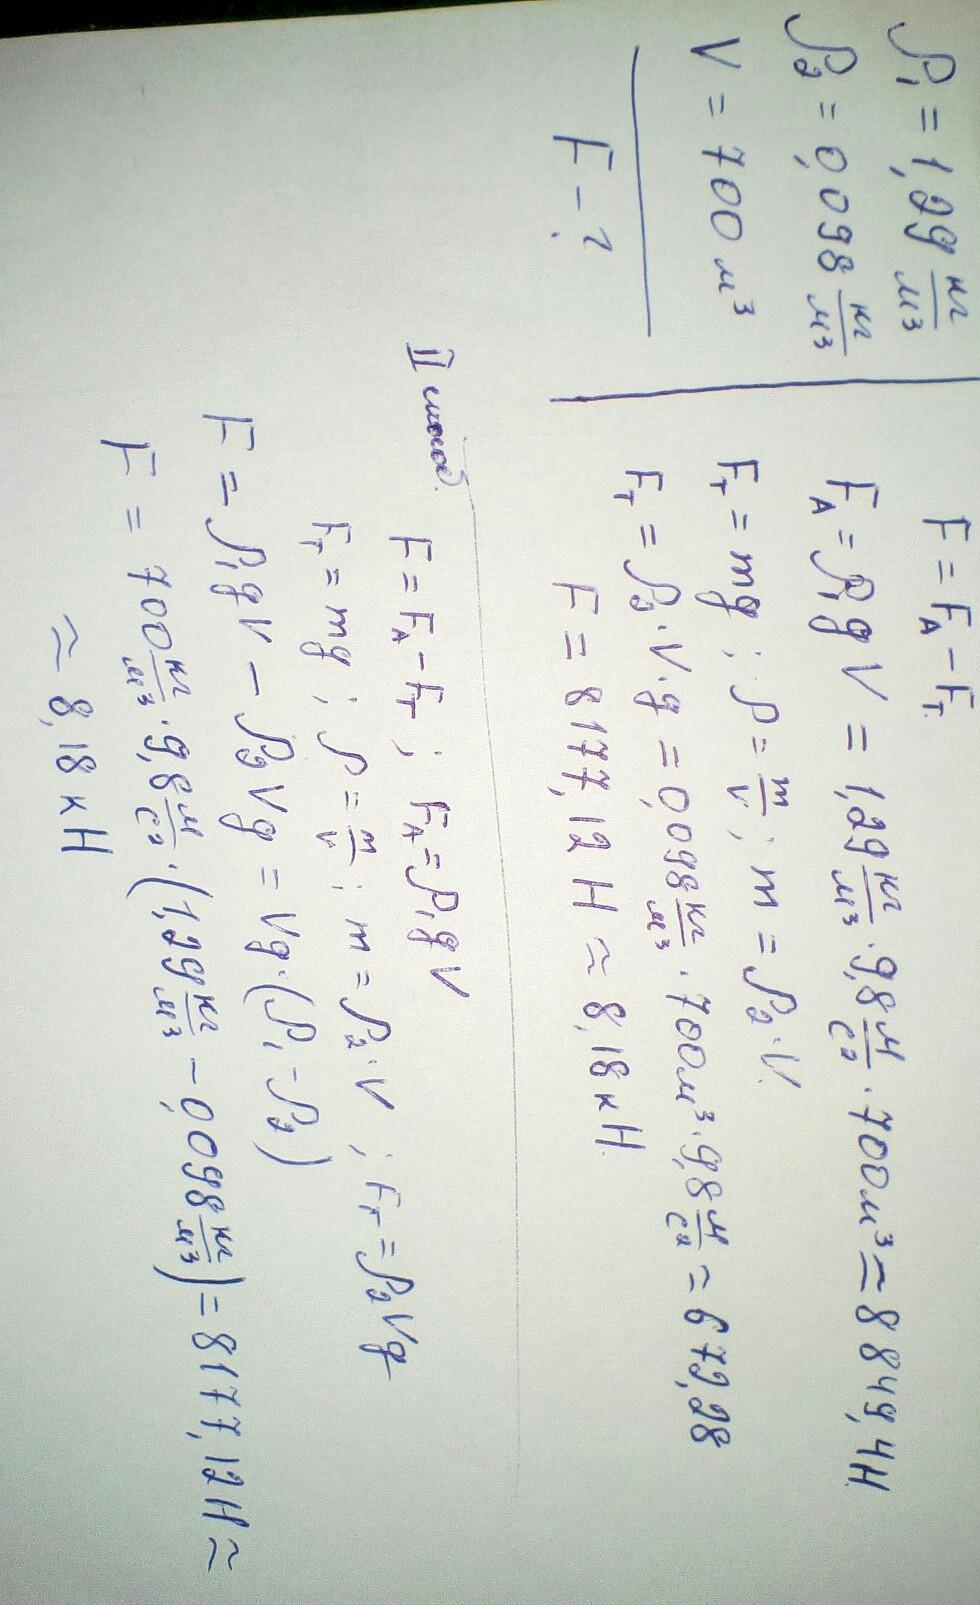 ρ₁ = 1,29 кг/м³
ρ₂ = 0,098 кг/м³
V = 700 м³
F - ?
F = F_A - F_T.
F_A = ρ₁gV = 1,29 кг/м³ · 9,8 м/с² · 700 м³ = 8849,4 Н
F_T = mg ; ρ = m/V ; m = ρ₂ · V.
F_T = ρ₂ · V · g = 0,098 кг/м³ · 700 м³ · 9,8 м/с² = 672,28
F = 8177,12 Н ≈ 8,18 кН.
II способ.
F = F_A - F_T ; F_A = ρ₁gV
F_T = mg ; ρ = m/V ; m = ρ₂ · V ; F_T = ρ₂Vg
F = ρ₁gV - ρ₂Vg = Vg · (ρ₁ - ρ₂)
F = 700 кг/м³ · 9,8 м/с² · (1,29 кг/м³ - 0,098 кг/м³) = 8177,12 Н ≈
≈ 8,18 кН